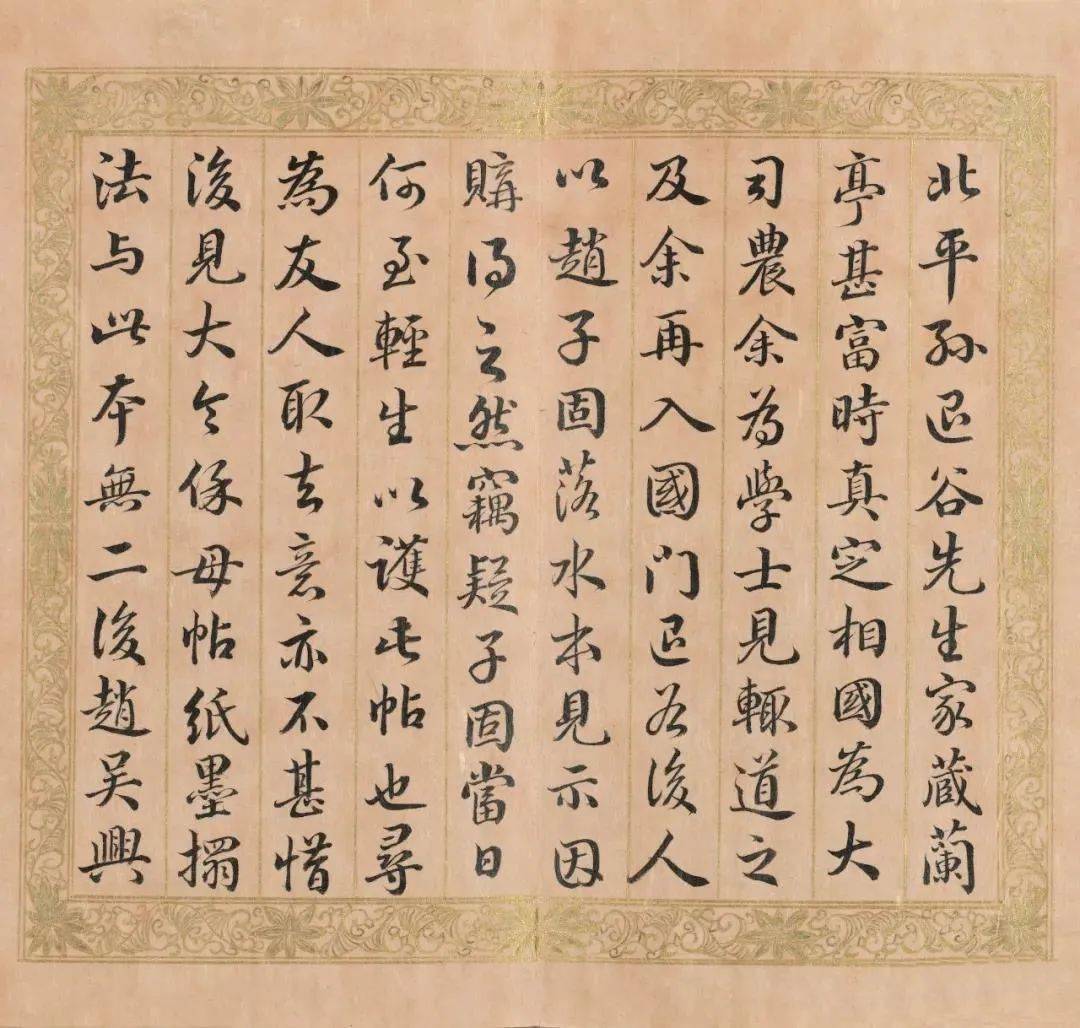 北平孫退谷先生家藏蘭
亭甚富時真定相國為大
司農余為學士見輒道之
及余再入國門退谷後人
以趙子固落水本見示因
購得之然竊疑子固當日
何至輕生以護此帖也尋
為友人取去意亦不甚惜
後見大令保母帖紙墨搨
法与此本無二後趙吳興